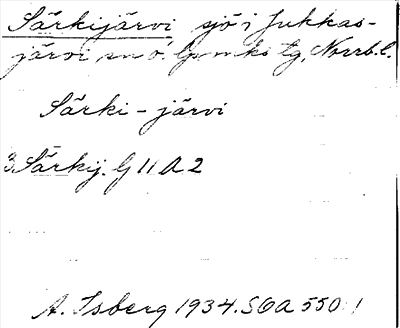 Särkijärvi sjö i Jukkas-
järvi sn o. lpmks tg, Norrb. l.
Särki-järvi
3. Särkij. G 11 A 2
A. Isberg 1934. SOA 550:1